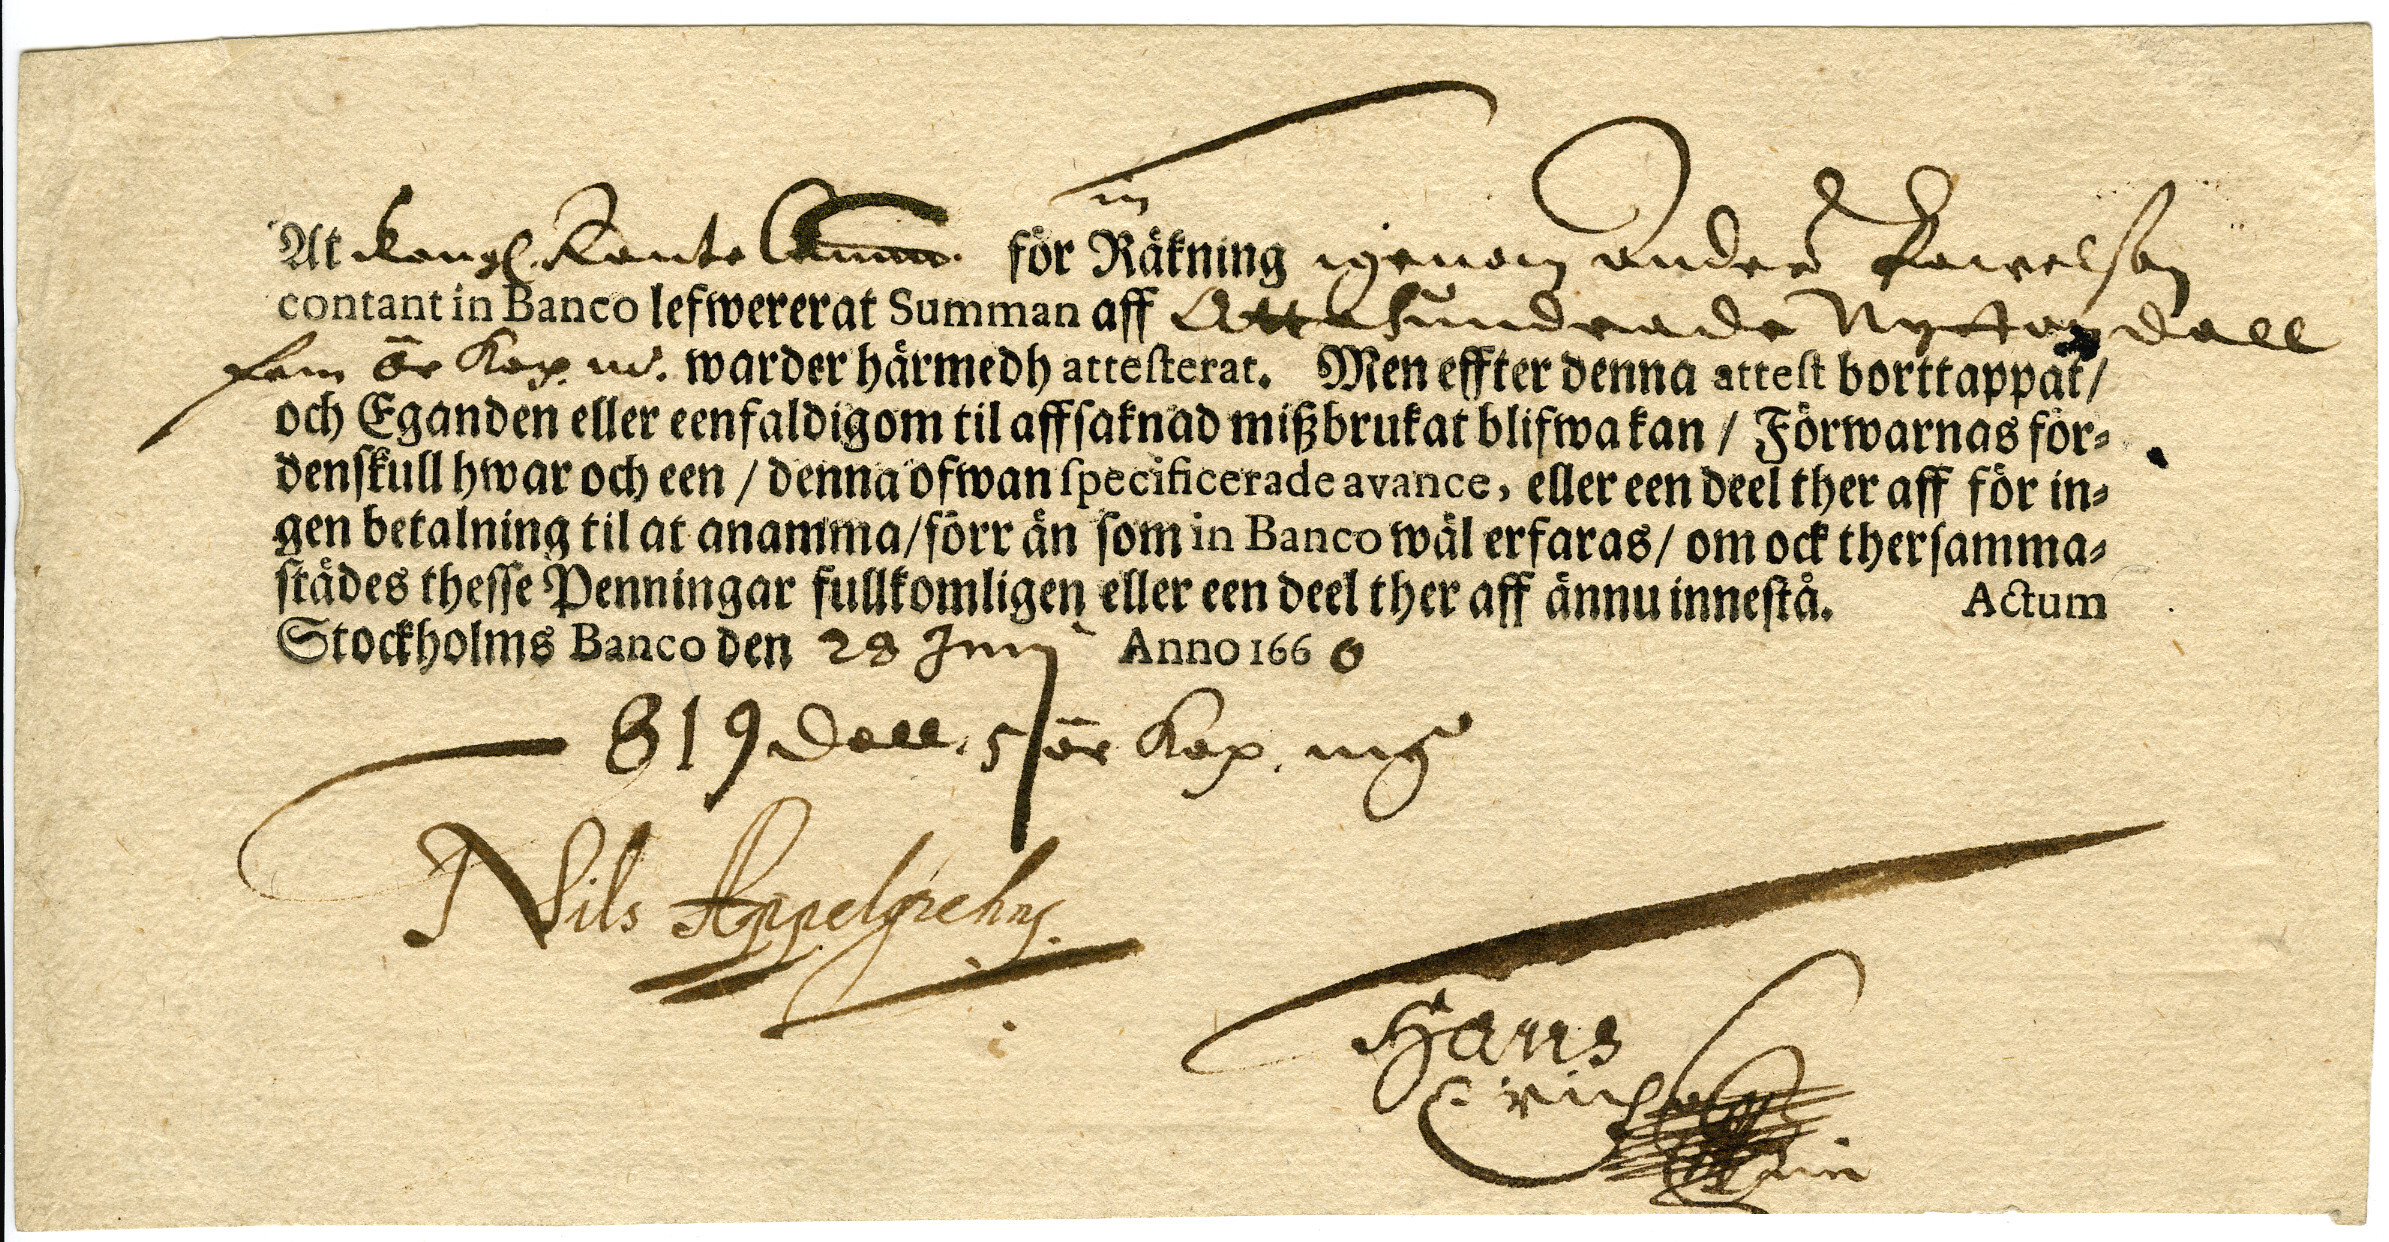 At Kongl. Rente Camm. för Räkning igenom Anders Pavelson
contant in Banco lefwererat Summan aff Otta hundrade Nytton dall
fem ör Kop. m. warder härmedh attesterat. Men effter denna attest borttappat/
och Eganden eller eenfaldigom til affsaknad mißbrukat blifwa kan / Förwarnas för-
denskull hwar och een / denna ofwan specificerade avance, eller een deel ther aff för in-
gen betalning til at anamma/förr än som in Banco wäl erfaras/ om ock thersamma-
städes thesse Penningar fullkomligen eller een deel ther aff ännu innestå. Actum
Stockholms Banco den 28 Junij Anno 1666
819 dall. 5 ör Kop. mt
Nils Appelgrehn
Hans